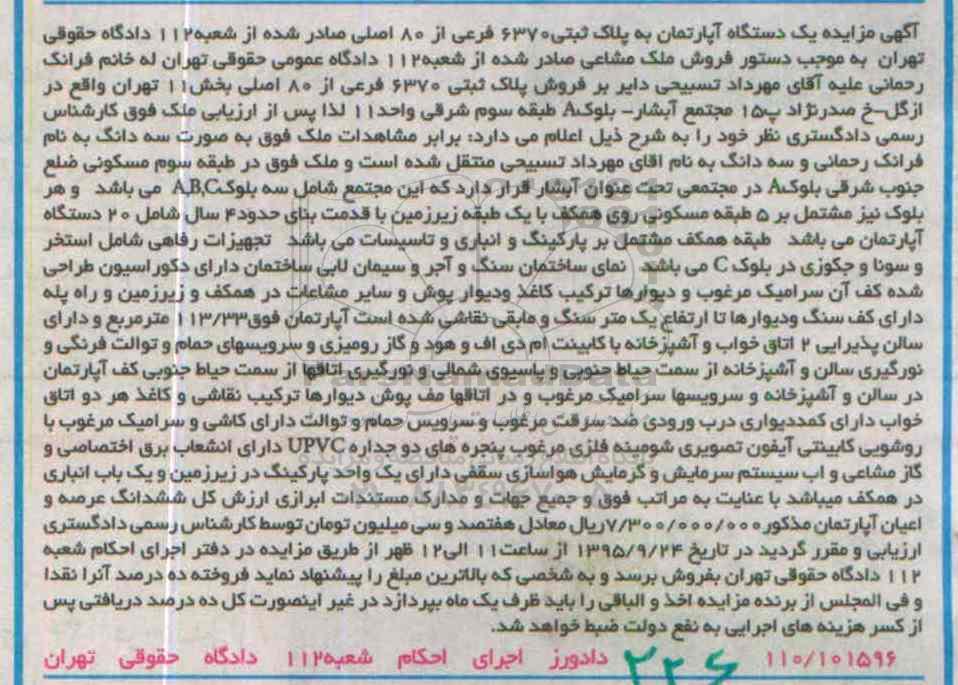 آگهی مزایده یک دستگاه آپارتمان به پلاک ثبتی۶۳۷۰ فرعی از ۸۰ اصلی صادر شده از شعبه۱۱۲ دادگاه حقوقی
تهران به موجب دستور فروش ملک مشاعی صادر شده از شعبه۱۱۲ دادگاه عمومی حقوقی تهران له خانم فرانک
رحمانی علیه آقای مهرداد تسبیحی دایر بر فروش پلاک ثبتی ۶۳۷۰ فرعی از ۸۰ اصلی بخش۱۱ تهران واقع در
ازگل-خ صدرنژاد پ۱۵ مجتمع آبشار- بلوکA طبقه سوم شرقی واحد۱۱ لذا پس از ارزیابی ملک فوق کارشناس
رسمی دادگستری نظر خود را به شرح ذیل اعلام می دارد: برابر مشاهدات ملک فوق به صورت سه دانگ به نام
فرانک رحمانی و سه دانگ به نام اقای مهرداد تسبیحی منتقل شده است و ملک فوق در طبقه سوم مسکونی ضلع
جنوب شرقی بلوکA در مجتمعی تحت عنوان آبشار قرار دارد که این مجتمع شامل سه بلوکA,B,C می باشد و هر
بلوک نیز مشتمل بر ۵ طبقه مسکونی روی همکف با یک طبقه زیرزمین با قدمت بنای حدود۴ سال شامل ۲۰ دستگاه
آپارتمان می باشد طبقه همکف مشتمل بر پارکینگ و انباری و تاسیسات می باشد تجهیزات رفاهی شامل استخر
و سونا و جکوزی در بلوک C می باشد نمای ساختمان سنگ و آجر و سیمان لابی ساختمان دارای دکوراسیون طراحی
شده کف آن سرامیک مرغوب و دیوارها ترکیب کاغذ ودیوار پوش و سایر مشاعات در همکف و زیرزمین و راه پله
دارای کف سنگ ودیوارها تا ارتفاع یک متر سنگ و مابقی نقاشی شده است آپارتمان فوق۱۱۳/۳۳ مترمربع و دارای
سالن پذیرایی ۲ اتاق خواب و آشپزخانه با کابینت ام دی اف و هود و گاز رومیزی و سرویسهای حمام و توالت فرنگی و
نورگیری سالن و آشپزخانه از سمت حیاط جنوبی و پاسیوی شمالی و نورگیری اتاقها از سمت حیاط جنوبی کف آپارتمان
در سالن و آشپزخانه و سرویسها سرامیک مرغوب و در اتاقها مف پوش دیوارها ترکیب نقاشی و کاغذ هر دو اتاق
خواب دارای کمددیواری درب ورودی ضد سرقت مرغوب و سرویس حمام و توالت دارای کاشی و سرامیک مرغوب با
روشویی کابینتی آیفون تصویری شومینه فلزی مرغوب پنجره های دو جداره UPVC دارای انشعاب برق اختصاصی و
گاز مشاعی و اب سیستم سرمایش و گرمایش هواسازی سقفی دارای یک واحد پارکینگ در زیرزمین و یک باب انباری
در همکف میباشد با عنایت به مراتب فوق و جمیع جهات و مدارک مستندات ابرازی ارزش کل ششدانگ عرصه و
اعیان آپارتمان مذکور۷/۳۰۰/۰۰۰/۰۰۰ریال معادل هفتصد و سی میلیون تومان توسط کارشناس رسمی دادگستری
ارزیابی و مقرر گردید در تاریخ ۱۳۹۵/۹/۲۴ از ساعت۱۱ الی۱۲ ظهر از طریق مزایده در دفتر اجرای احکام شعبه
۱۱۲ دادگاه حقوقی تهران بفروش برسد و به شخصی که بالاترین مبلغ را پیشنهاد نماید فروخته ده درصد آنرا نقدا
و فی المجلس از برنده مزایده اخذ و الباقی را باید ظرف یک ماه بپردازد در غیر اینصورت کل ده درصد دریافتی پس
از کسر هزینه های اجرایی به نفع دولت ضبط خواهد شد.
۱۱۰/۱۰۱۵۹۶ دادورز اجرای احکام شعبه۱۱۲ دادگاه حقوقی تهران
۲۲۶